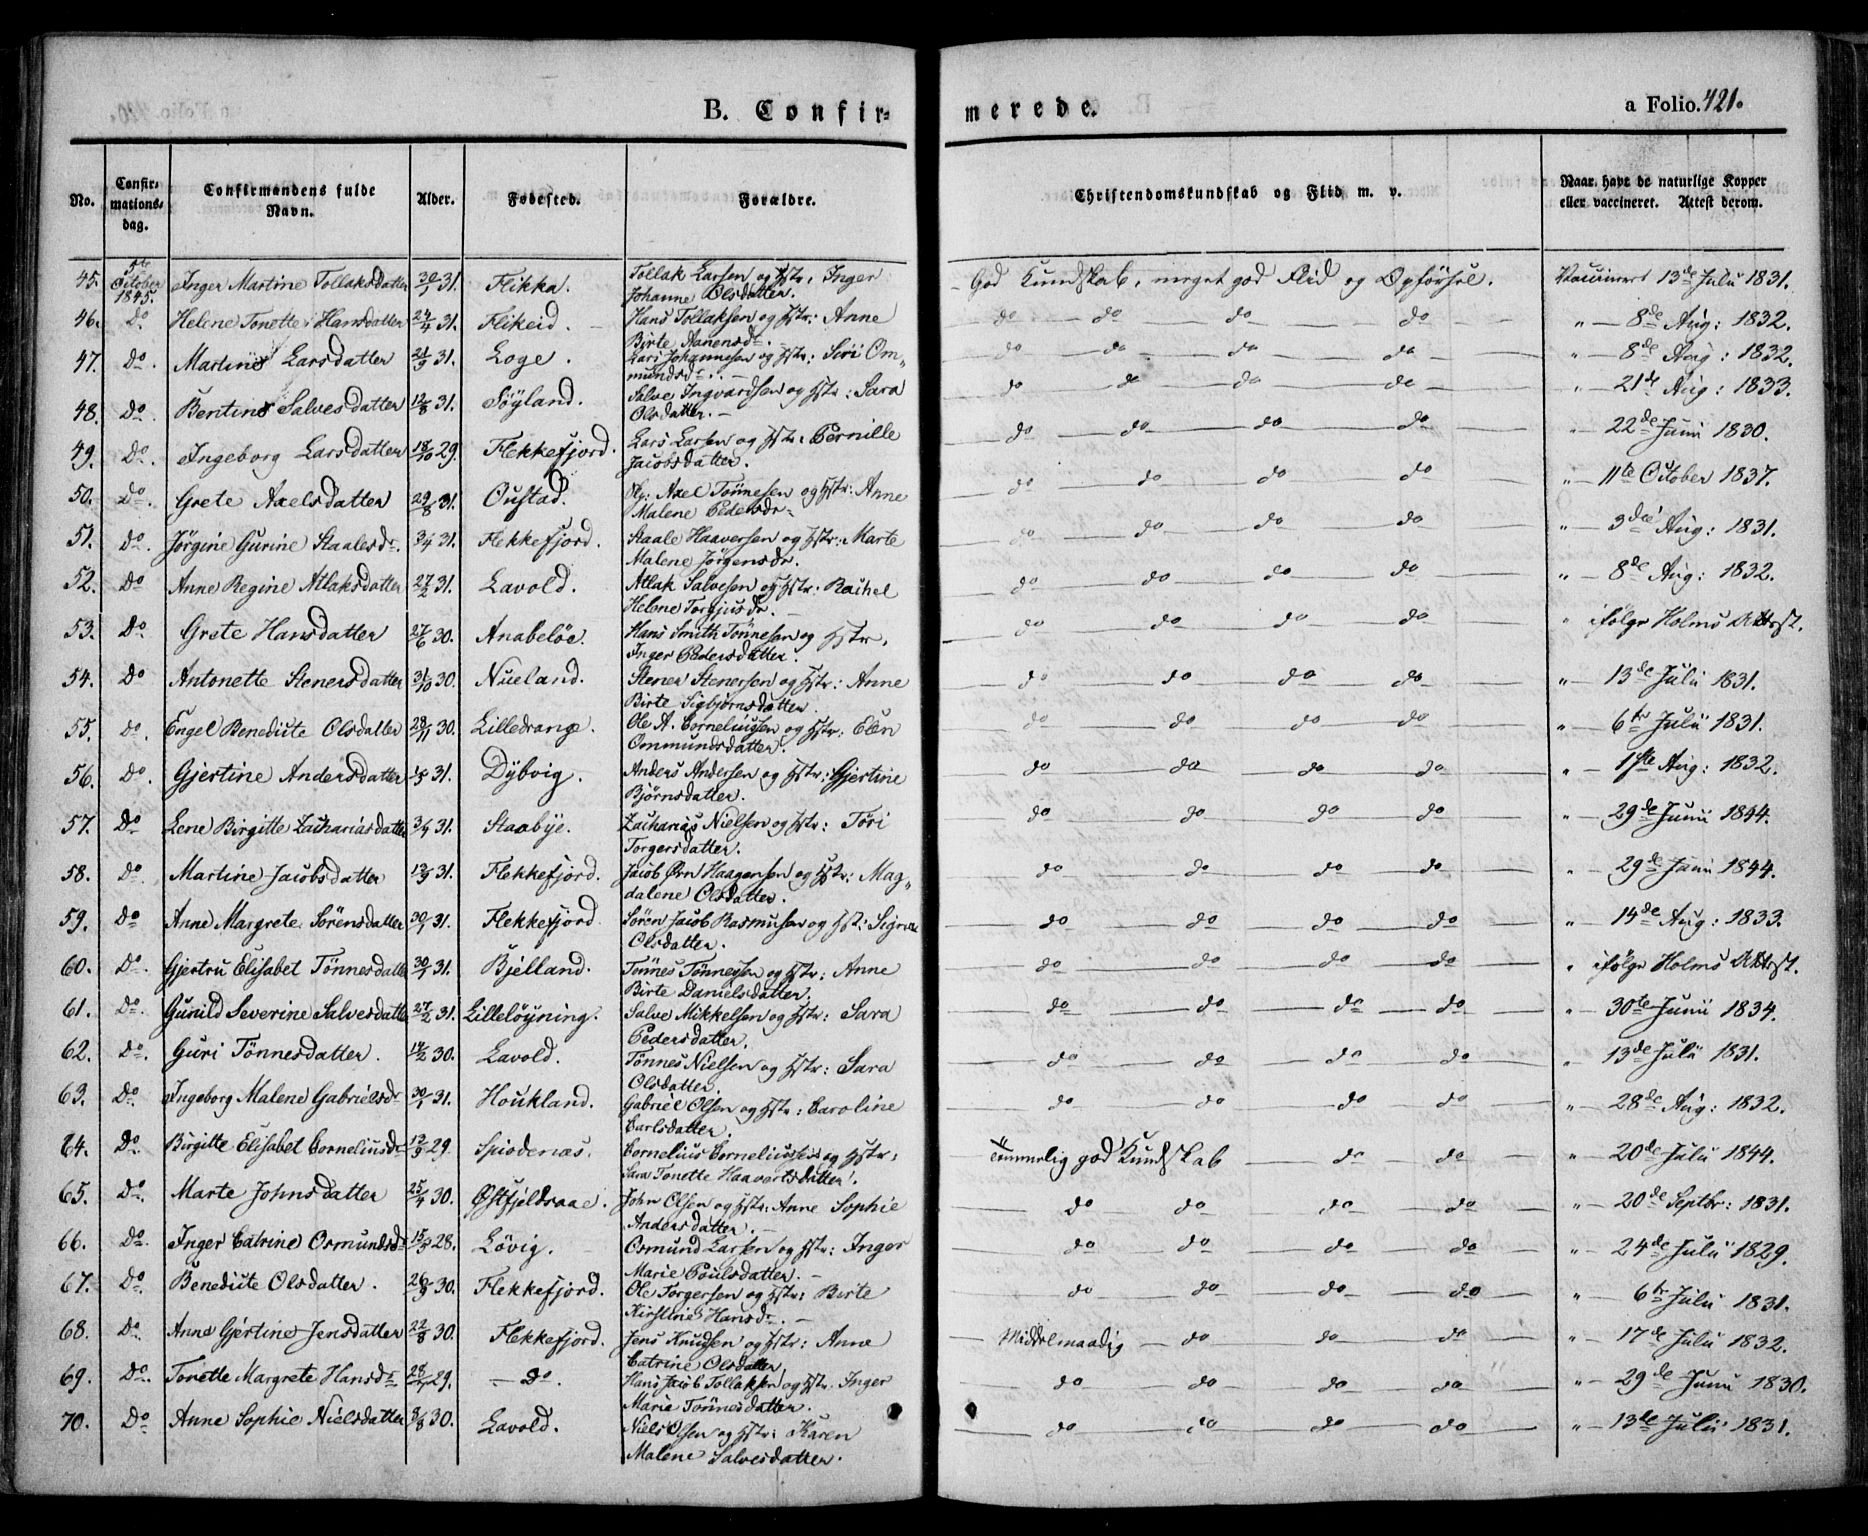 B. Confir-
merede.
a Folio. 421.
No. Confir-mations-dag. Confirmandens fulde Navn. Alder. Fødested. Forældre. Christendomskundskab og Flid m. v. Naar havt de naturlige Kopper eller vaccineret. Attest derom.
45. 5te October 1845. Inger Martine Tollaksdatter 30/1 31. Flikka. Tollak Larsen og Hstr. Inger Johanne Olsdatter. God Kundskab, meget god Flid og Opførsel. Vaccineret 13de Julii 1831.
46. Do. Helene Tonette Hansdatter 24/4 31. Flikeid. Hans Tollaksen og Hstr: Anne Birte Aanensdr. do do do do " 8de Aug: 1832.
47. Do. Martine Larsdatter 21/9 31. Loge. Lars Johannesen og Hstr: Siri Ommundsdr. do do do do " 8de Aug: 1832.
48. Do. Bentine Salvesdatter 12/8 31. Søyland. Salve Ingvardsen og Hstr: Sara Olsdatter. do do do do " 21de Aug: 1833.
49. Do. Ingeborg Larsdatter 18/10 29. Flekkefjord. Lars Larsen og Hstr: Pernille Jacobsdatter. do do do do " 22de Junii 1830.
50. Do. Grete Axelsdatter 29/8 31. Oustad. Axel Tönnesen og Hstr: Anne Malene Pedersdr. do do do do " 11te October 1837.
51. Do. Jørgine Gurine Staalesdr. 31. Flekkefjord. Staale Haaversen og Hstr: Marte Malene Jørgensdr. do do do do " 3die Aug: 1831.
52. Do Anne Regine Atlaksdatter 27/2 31. Lavold. Atlak Salvesen og Hstr: Rachel Helene Torgjusdr. do do do do " 8de Aug: 1832.
53. Do. Grete Hansdatter 27/6 30. Anabeløe. Hans Smith Tönnesen og Hstr. Inger Pedersdatter. do do do do " ifølge Holms Attest.
54. Do Antonette Stenersdatter 31/10 30. Nueland. Stener Stenersen og Hstr: Anne Birte Sigbjørnsdatter. do do do do " 13de Julii 1831.
55. Do. Engel Benedicte Olsdatter 28/11 30. Lilledrange. Ole A. Corneliussen og Hstr: Elen Ommundsdatter. do do do do " 6te Julii 1831.
56. Do. Gjertine Andersdatter 31. Dybvig. Anders Andersen og Hstr: Gjertine Bjørnsdatter. do do do do " 1ste Aug: 1832.
57. Do Lene Birgitte Zachariasdatter 31. Staabye. Zacharias Nielsen og Hstr: Töri Torgersdatter. do do do do " 29de Junii 1844.
58. Do. Martine Jacobsdatter 31. Flekkefjord. Jacob Ørn Haagensen og Hstr: Magdalene Olsdatter. do do do do " 29de Junii 1844.
59. Do Anne Margrete Sørensdatter 30/1 31. Flekkefjord. Søren Jacob Rasmusen og Hst: Olsdatter. do do do do " 14de Aug: 1833.
60. Do. Gjertru Elisabet Tönnesdatter 31. Bjelland. Tönnes Tönnessen og Hstr: Anne Birte Danielsdatter. do do do do " ifølge Holms Attest.
61. Do. Gunild Severine Salvesdatter 27/2 31. Lilleløyning. Salve Mikkelsen og Hstr: Sara Pedersdatter. do do do do " 30te Junii 1834.
62. Do. Guri Tönnesdatter. 30. Lavold. Tönnes Nielsen og Hstr: Sara Olsdatter. do do do do " 13de Julii 1831.
63. Do. Ingeborg Malene Gabrielsdr 31. Houkland. Gabriel Olsen og Hstr: Caroline Carlsdatter. do do do do " 28de Aug: 1832.
64. Do. Birgitte Elisabet Corneliusdr 29. Spiodenæs. Cornelius Corneliussen og Hstr: Sara Tonette Haavartsdatter. Temmelig god Kundskab do do " 20de Julii 1844.
65. Do. Marte Johnsdatter 25/4 30. Østfjeldraae. John Olsen og Hstr: Anne Sophie Andersdatter. do do do do " 20de Septbr: 1831.
66. Do. Inger Catrine Osmundsdr 28. Lövig. Osmund Larsen og Hstr: Inger Marie Poulsdatter. do do do do " 24de Julii 1829.
67. Do. Benedicte Olsdatter. 26/9 30. Flekkefjord. Ole Torgersen og Hstr: Birte Kirstine Hansdr. do do do do " 6te Julii 1831.
68. Do. Anne Gjertine Jensdatter 22/8 30. Flekkefjord. Jens Knudsen og Hstr: Anne Catrine Olsdatter. Middelmaadig do do do " 17de Julii 1832.
69. Do. Tonette Margrete Hansdr 29. Do. Hans Jacob Tollaksen og Hstr. Inger Marie Tönnesdatter. do do do do " 29de Junii 1830.
70. Do Anne Sophie Nielsdatter 30. Lavold. Niels Olsen og Hstr: Karen Malene Salvesdatter. do do do do " 13de Julii 1831.